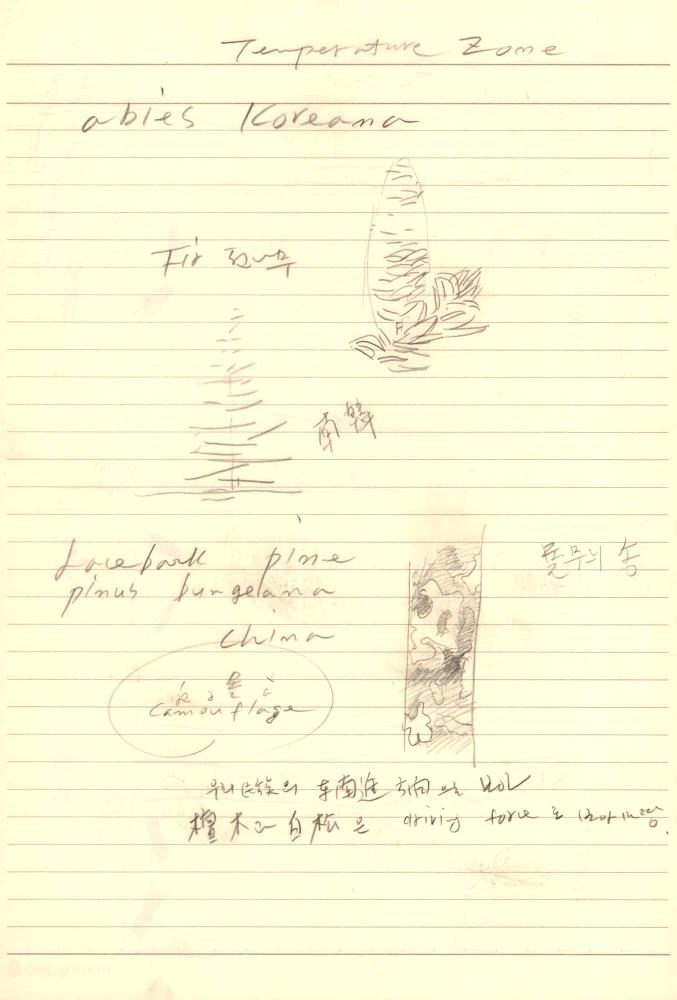 Temperature Zone
abies Koreana
Fir 전나무
南韓
Lacebark pine
pinus bungeana
china
돌무늬 송
camouflage
우리 民族의 東南進 方向으로 보아
檀木과 白松은 driving force로